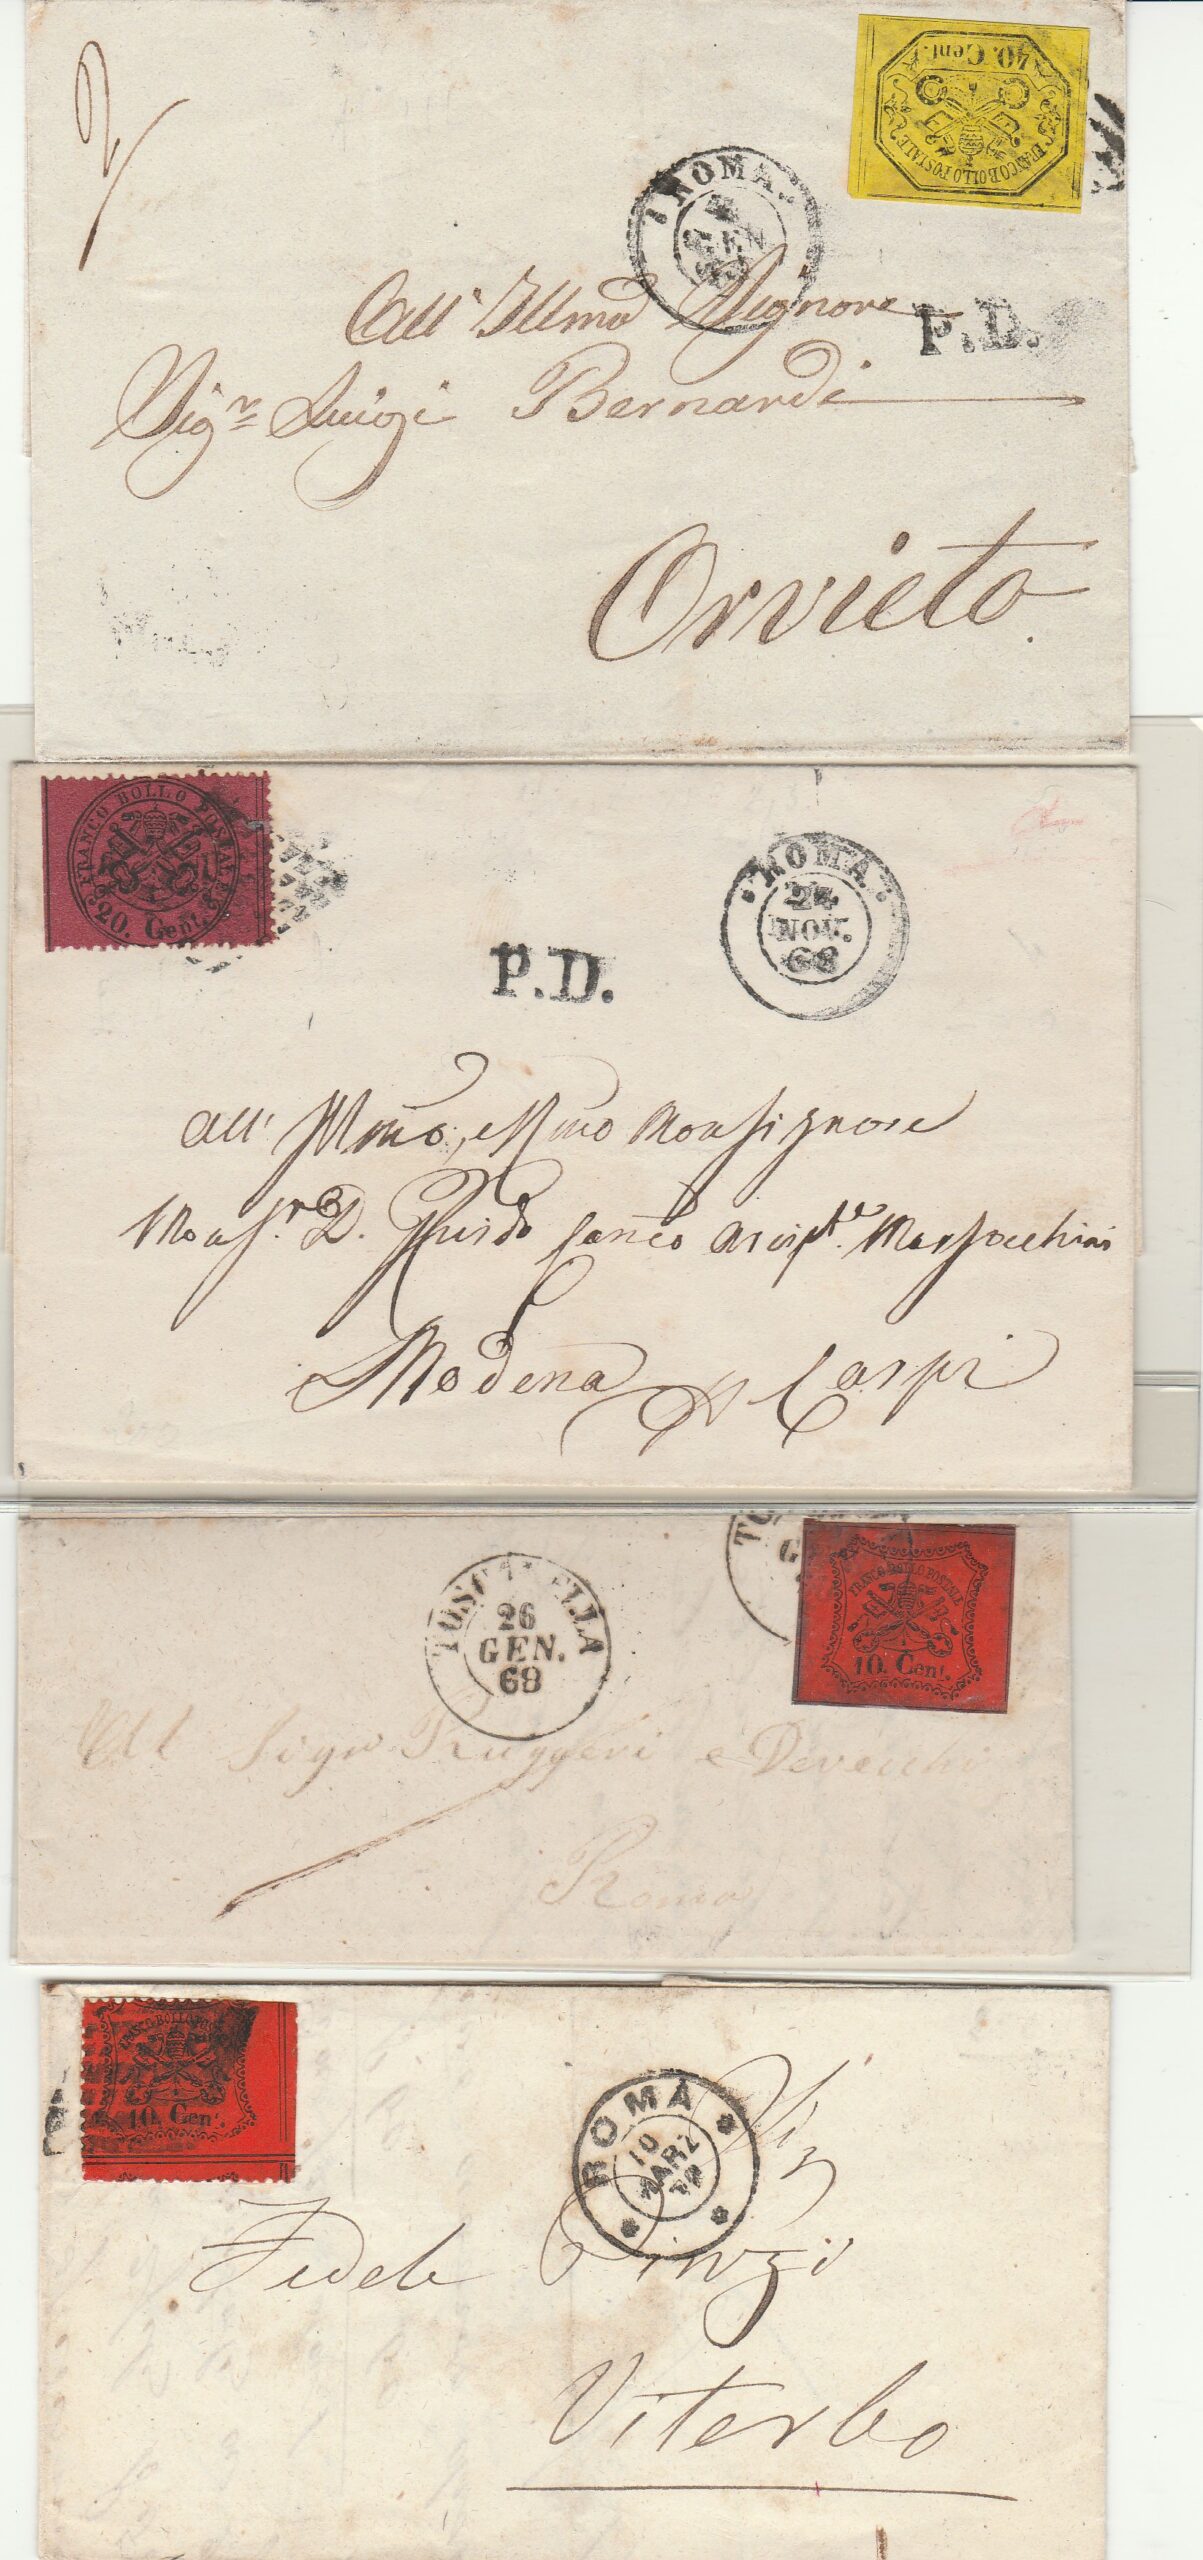 FRANCO BOLLO POSTALE
40. Cent.
ROMA
GEN
P.D.
All' Illmo Signore
Sigr. Luigi Bernardi
Orvieto
FRANCO BOLLO POSTALE
20. Cent.
ROMA
24
NOV.
68
P.D.
All' Illmo, e Rmo Monsignore
Monsr. D. Guido
Modena Carpi
TOSCANELLA
26
GEN.
68
FRANCO BOLLO POSTALE
10. Cent.
Al Sigr Ruggeri e Devecchi
Roma
FRANCO BOLLO POSTALE
10. Cent.
ROMA
10
MARZ
70
Sig
Fedele Pinzi
Viterbo